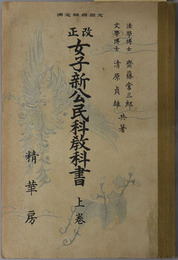 文部省検定済
法學博士 齋藤常三郎
文學博士 清原貞雄 共著
改正 女子新公民科教科書 上卷
精華房